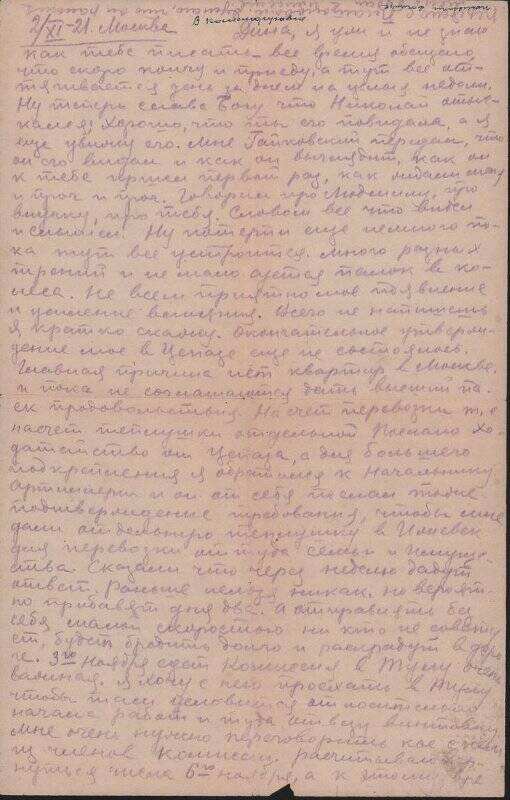 В командировке
2/XI-21. Москва Дина, я ули и не знаю
как тебе писать все время обещаю
что скоро кончу и приеду, а тут все от-
тягивается день за днем на целая недели.
Ну теперь слава Богу что Николай отыс-
кался! Хорошо, что ты его повидала, а я
еще увижу его. Мне Гайковский передал, что
он его видал и как он выглядит, как он
к тебе пришел первый раз, как
и проч и проч. Говорил про Людмилу, про
про тебя. Словом все что видел
и слышал. Ну потерпи еще немного по-
ка тут все устроится. Много разных
трений и не мало суется палок в ко-
леса. Не всем приятно мое появление
и усиление влияния. Всего не напишешь
я кратко скажу. Окончательное утверж-
дение мое в Цепаде еще не состоялось.
Главная причина нет квартир в Москве.
и пока не соглашаются дать высший па-
ек продовольствия. Насчет перевозки т.е
насчет теплушки отдельной послано хо-
датайство от Цепада, а для большего
подкрепления я обратился к Начальнику
артиллерии и он от себя послал тоже
подтверждение требования, чтобы мне
дали отдельную теплушку в Ижевск
для перевозки оттуда семьи и имуще-
ства. Сказали что через неделю дадут
ответ. Раньше нельзя никак. но вероят-
но прибавят дня два. А отправлять без
себя малой скоростью ни кто не совету
ет, будет бродить долго и раскрадут в доро
ге. 3го Ноября едет Комиссия в Тулу очень
важная. Я хочу с нею проехать в Тулу
чтобы там условиться относительно
начала работ и туда отвезу винтовку.
Мне очень нужно переговорить кое с кем
из членов Комиссии. расчитываю вер-
нуться числа 6го ноября, а к этому вре